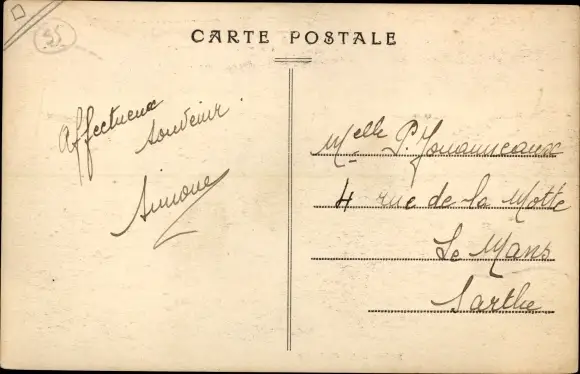 55
CARTE POSTALE
Affectueux
souvenir.
Simone
Melle P. Jouanneaux
4 rue de la Motte
Le Mans
Sarthe